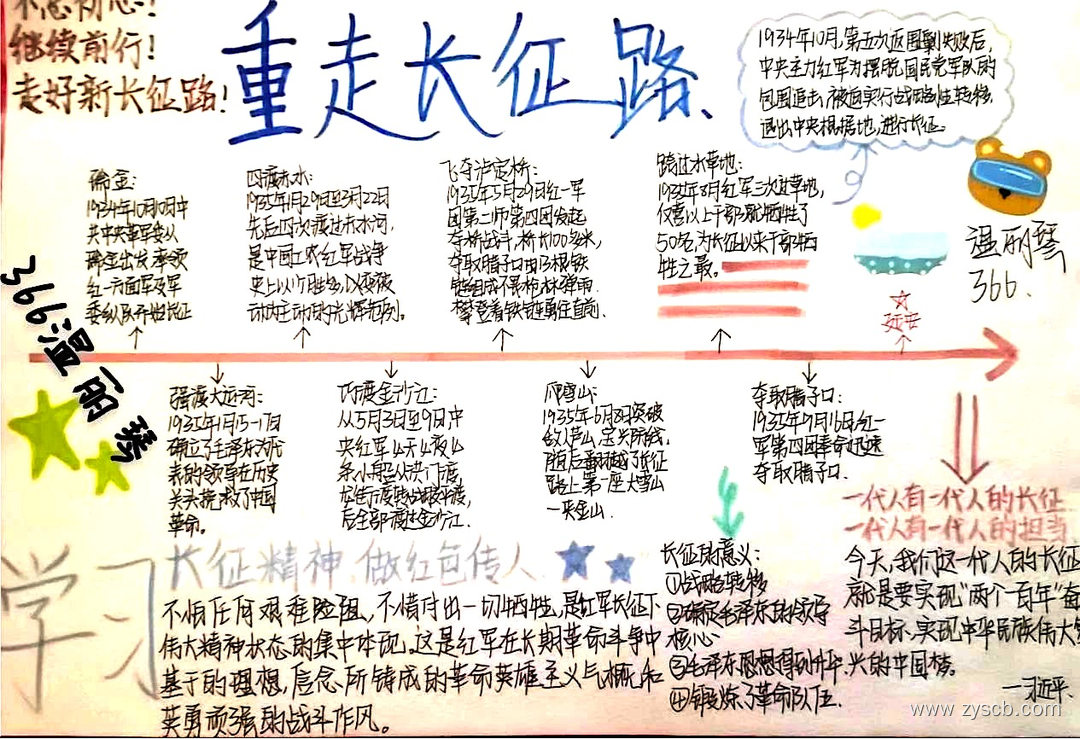 不忘初心!
继续前行!
走好新长征路!
重走长征路、
1934年10月,第五次反围剿失败后,
中央主力红军为摆脱国民党军队的
包围追击,被迫实行战略性转移,
退出中央根据地,进行长征.
瑞金:
1934年10月10日中
共中央革军委从
瑞金出发,率领
红一方面军及军
委纵队开始长征
四渡赤水:
1935年1月29日至3月22日
先后四次渡过赤水河,
是中国工农红军战争
史上以少胜多,以变被
动为主动的光辉范例。
飞夺泸定桥:
1935年5月29日红一军
团第二师第四团发起
夺桥战斗,桥长100多米,
夺取腊子口由13根铁
链组成,冒枪林弹雨
攀登着铁链勇往直前.
跨过水草地:
1935年8月红军三次过草地,
仅营以上干部就牺牲了
50名,为长征以来干部牺
牲之最。
温丽琴
366.
延安
366温丽琴
强渡大运河:
1935年1月15-17日
确立了毛泽东为代
表的领导在历史
关头挽救了中国
革命。
巧渡金沙江:
从5月3日至9日中
央红军
后全部渡过金沙江.
爬雪山:
1935年6月8日突破
敌人芦山、宝兴防线,
随后翻越了长征
路上第一座大雪山
一夹金山.
夺取腊子口:
1935年9月16日红一
军第四团革命迅速
夺取腊子口.
一代人有一代人的长征
一代人有一代人的担当.
今天,我们这一代人的长征
就是要实现"两个百年"奋
斗目标,实现中华民族伟大复
兴的中国梦。
一习近平.
学习
长征精神.做红色传人.
不怕任何艰难险阻,不惜付出一切牺牲,是红军长征
伟大精神状态的集中体现.这是红军在长期革命斗争中
基于的理想,信念.所铸成的革命英雄主义气概和
英勇顽强的战斗作风。
长征的意义:
①战略转移
②确定毛泽东的领导
核心
③毛泽东思想得到升平
④锻炼了革命队伍.
www.zyscb.com